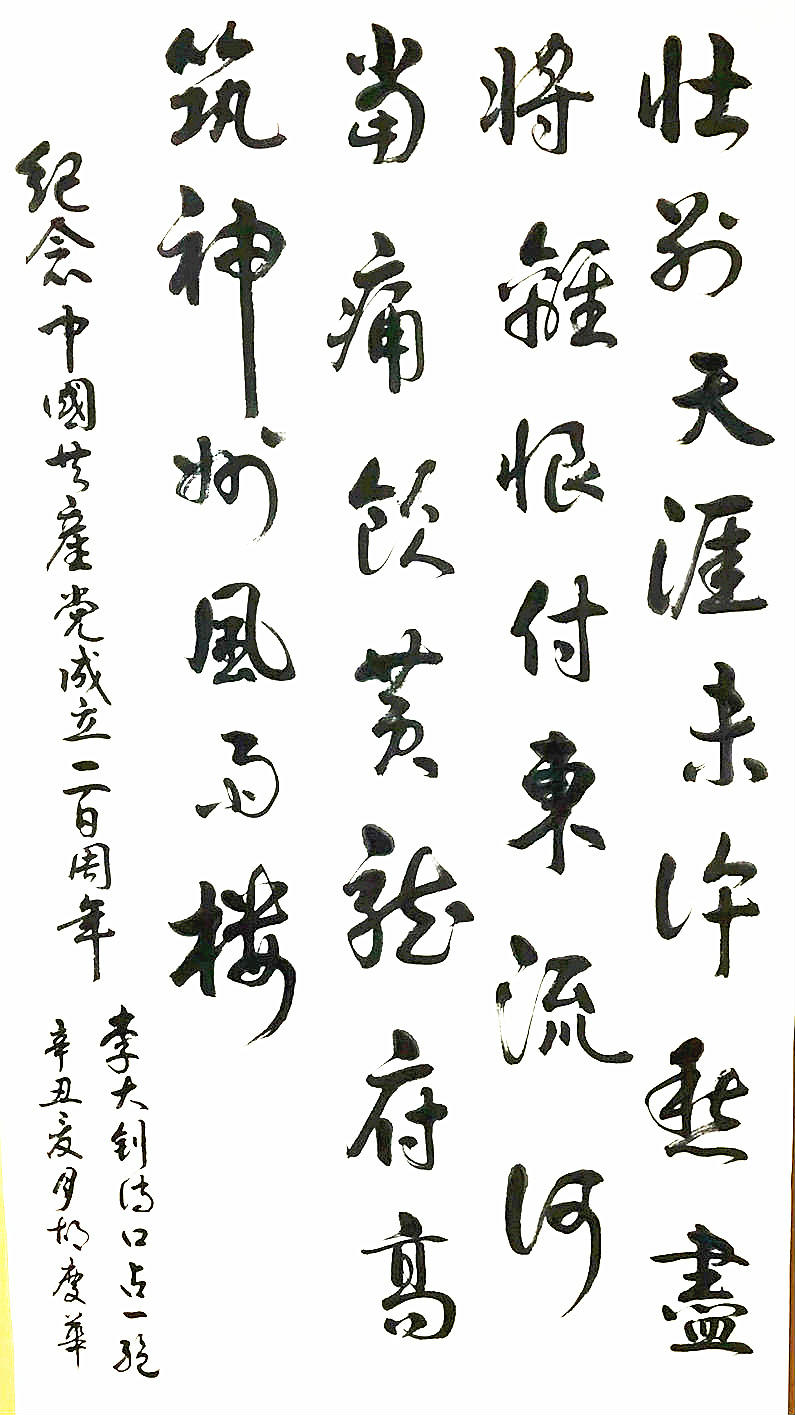 壮别天涯未许愁盡
将離恨付東流何
當痛飲黄龍府高
筑神州風雨楼
纪念中國共產党成立一百周年
李大钊诗口占一绝
辛丑夏月胡慶華